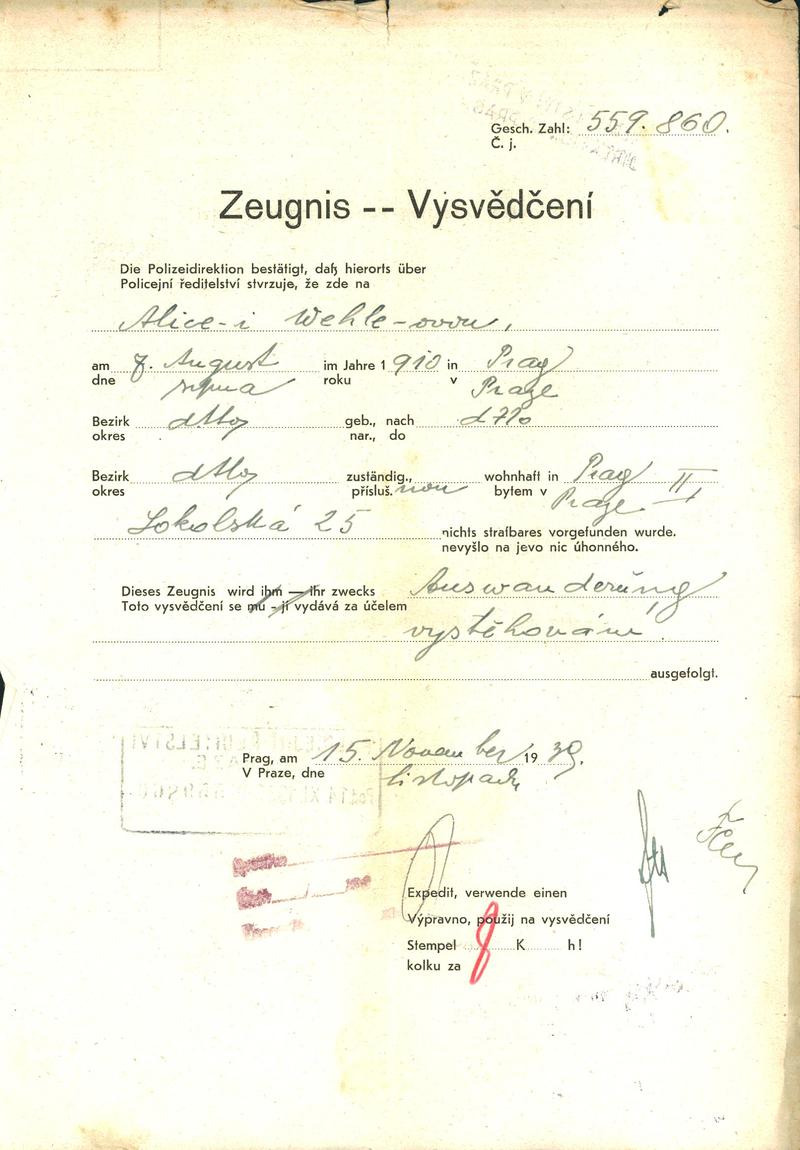 Gesch. Zahl: 559.860.
Č. j.
Zeugnis -- Vysvědčení
Die Polizeidirektion bestätigt, daß hierorts über
Policejní ředitelství stvrzuje, že zde na
Alice-i Wehle-ovou,
am 7. August im Jahre 1 910 in Prag
dne srpna roku v Praze
Bezirk dtto geb., nach dtto
okres nar., do
Bezirk dtto zuständig., wohnhaft in Prag II
okres přísluš. nou bytem v Praze
Sokolská 25 nichts strafbares vorgefunden wurde.
nevyšlo na jevo nic úhonného.
Dieses Zeugnis wird ihm — ihr zwecks Auswanderung
Toto vysvědčení se mu - jí vydává za účelem
vystěhování
ausgefolgt.
Prag, am 15. November 19 39.
V Praze, dne listopadu
Expedit, verwende einen
Výpravno, použij na vysvědčení
Stempel 8 K h!
kolku za